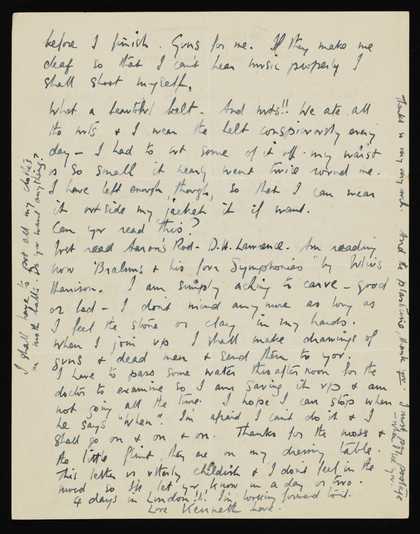 before I finish. Guns for me. If they make me
deaf so that I can't hear music properly I
shall shoot myself.
What a beautiful belt. And nuts!! We ate all
the nuts & I wear the belt conspicuously every
day - I had to cut some of it off - my waist
is so small it nearly went twice round me.
I have left enough, though, so that I can wear
it outside my jacket if I want.
Can you read this?
Just read Aaron's Rod - D.H. Lawrence. Am reading
now "Brahms & his four Symphonies" by Julius
Harrison. I am simply aching to carve - good
or bad - I don't mind any more as long as
I feel the stone or clay in my hands.
When I join up I shall make drawings of
guns & dead men & send them to you.
I have to pass some water this afternoon for the
doctor to examine so I am saving it up & am
not going all the time. I hope I can stop when
he says "when". I'm afraid I can't do it & I
shall go on & on & on. Thanks for the moss &
the little flint, they are on my dressing table.
This letter is utterly childish & I don't feel in the
mood so I'll let you know in a day or two.
4 days in London!!! I'm looking forward
Love Kenneth
I shall have to put all my clothes
in moth balls. Do you want anything?
Thank you very very much. And the plasticine, thank you. I must